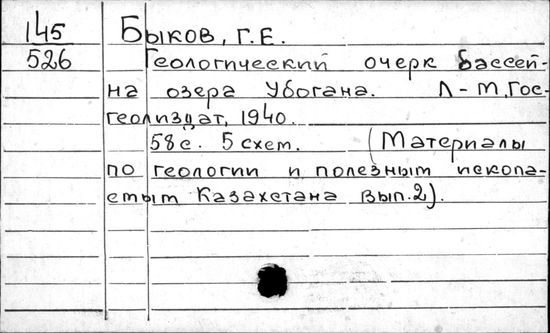 145 Быков, Г.Е.
526 Геологический очерк бассей-
на озера Убогана. Л-М, Гос-
геолиздат, 1940.
58с. 5 схем. (Материалы
по геологии и полезным ископа-
емым Казахстана Вып.2).